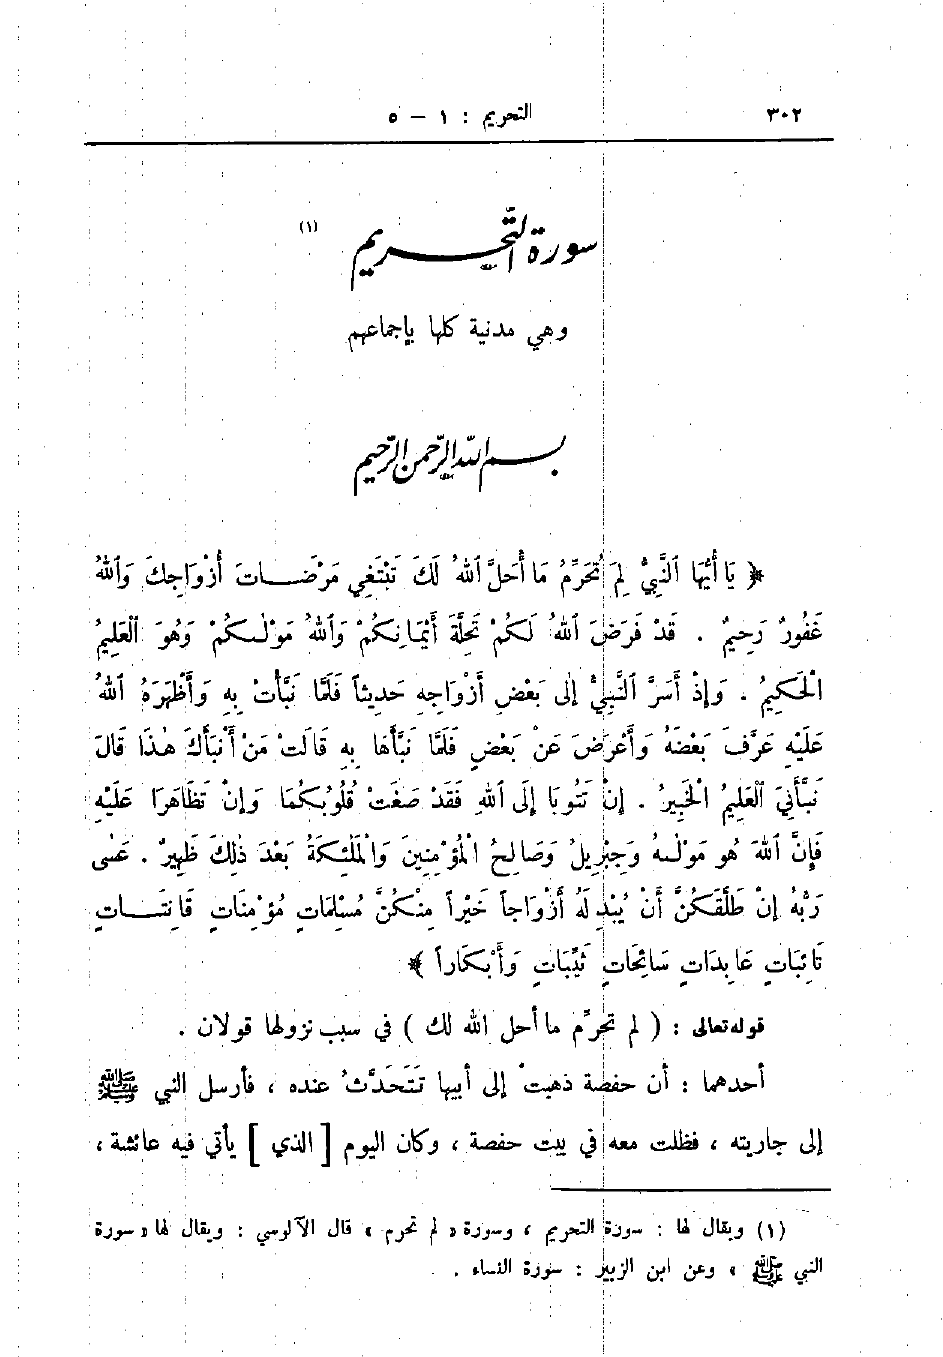 ٣٠٢
التحريم : ١ – ٥
سورة التحريم (١)
وهي مدنية كلها بإجماعهم
بسم الله الرحمن الرحيم
﴿ يَا أَيُّهَا ٱلنَّبِيُّ لِمَ تُحَرِّمُ مَا أَحَلَّ ٱللهُ لَكَ تَبْتَغِي مَرْضَاتَ أَزْوَاجِكَ وَٱللهُ
غَفُورٌ رَحِيمٌ . قَدْ فَرَضَ ٱللهُ لَكُمْ تَحِلَّةَ أَيْمَانِكُمْ وَٱللهُ مَوْلٰكُمْ وَهُوَ ٱلْعَلِيمُ
الْحَكِيمُ . وَإِذْ أَسَرَّ ٱلنَّبِيُّ إِلَى بَعْضِ أَزْوَاجِهِ حَدِيثاً فَلَمَّا نَبَّأَتْ بِهِ وَأَظْهَرَهُ ٱللهُ
عَلَيْهِ عَرَّفَ بَعْضَهُ وَأَعْرَضَ عَنْ بَعْضٍ فَلَمَّا نَبَّأَهَا بِهِ قَالَتْ مَنْ أَنْبَأَكَ هٰذَا قَالَ
نَبَّأَنِيَ ٱلْعَلِيمُ الْخَبِيرُ . إِنْ تَتُوبَا إِلَى ٱللهِ فَقَدْ صَغَتْ قُلُوبُكُمَا وَإِنْ تَظَاهَرَا عَلَيْهِ
فَإِنَّ ٱللهَ هُوَ مَوْلٰيهُ وَجِبْرِيلُ وَصَالِحُ الْمُؤْمِنِينَ وَالْمَلٰئِكَةُ بَعْدَ ذٰلِكَ ظَهِيرٌ . عَسٰى
رَبُّهُ إِنْ طَلَّقَكُنَّ أَنْ يُبْدِلَهُ أَزْوَاجاً خَيْراً مِنْكُنَّ مُسْلِمَاتٍ مُؤْمِنَاتٍ قَانِتَاتٍ
تَائِبَاتٍ عَابِدَاتٍ سَائِحَاتٍ ثَيِّبَاتٍ وَأَبْكَاراً ﴾
قوله تعالى : ( لم تحرِّم ما أحل الله لك ) في سبب نزولها قولان .
أحدهما : أن حفصة ذهبتْ إلى أبيها تَتَحَدَّثُ عنده ، فأرسل النبي ﷺ
إلى جاريته ، فظلت معه في بيت حفصة ، وكان اليوم [ الذي ] يأتي فيه عائشة ،
(١) ويقال لها : سورة التحريم ، وسورة « لم تحرم » قال الآلوسي : ويقال لها « سورة
النبي ﷺ » وعن ابن الزبير : سورة النساء .